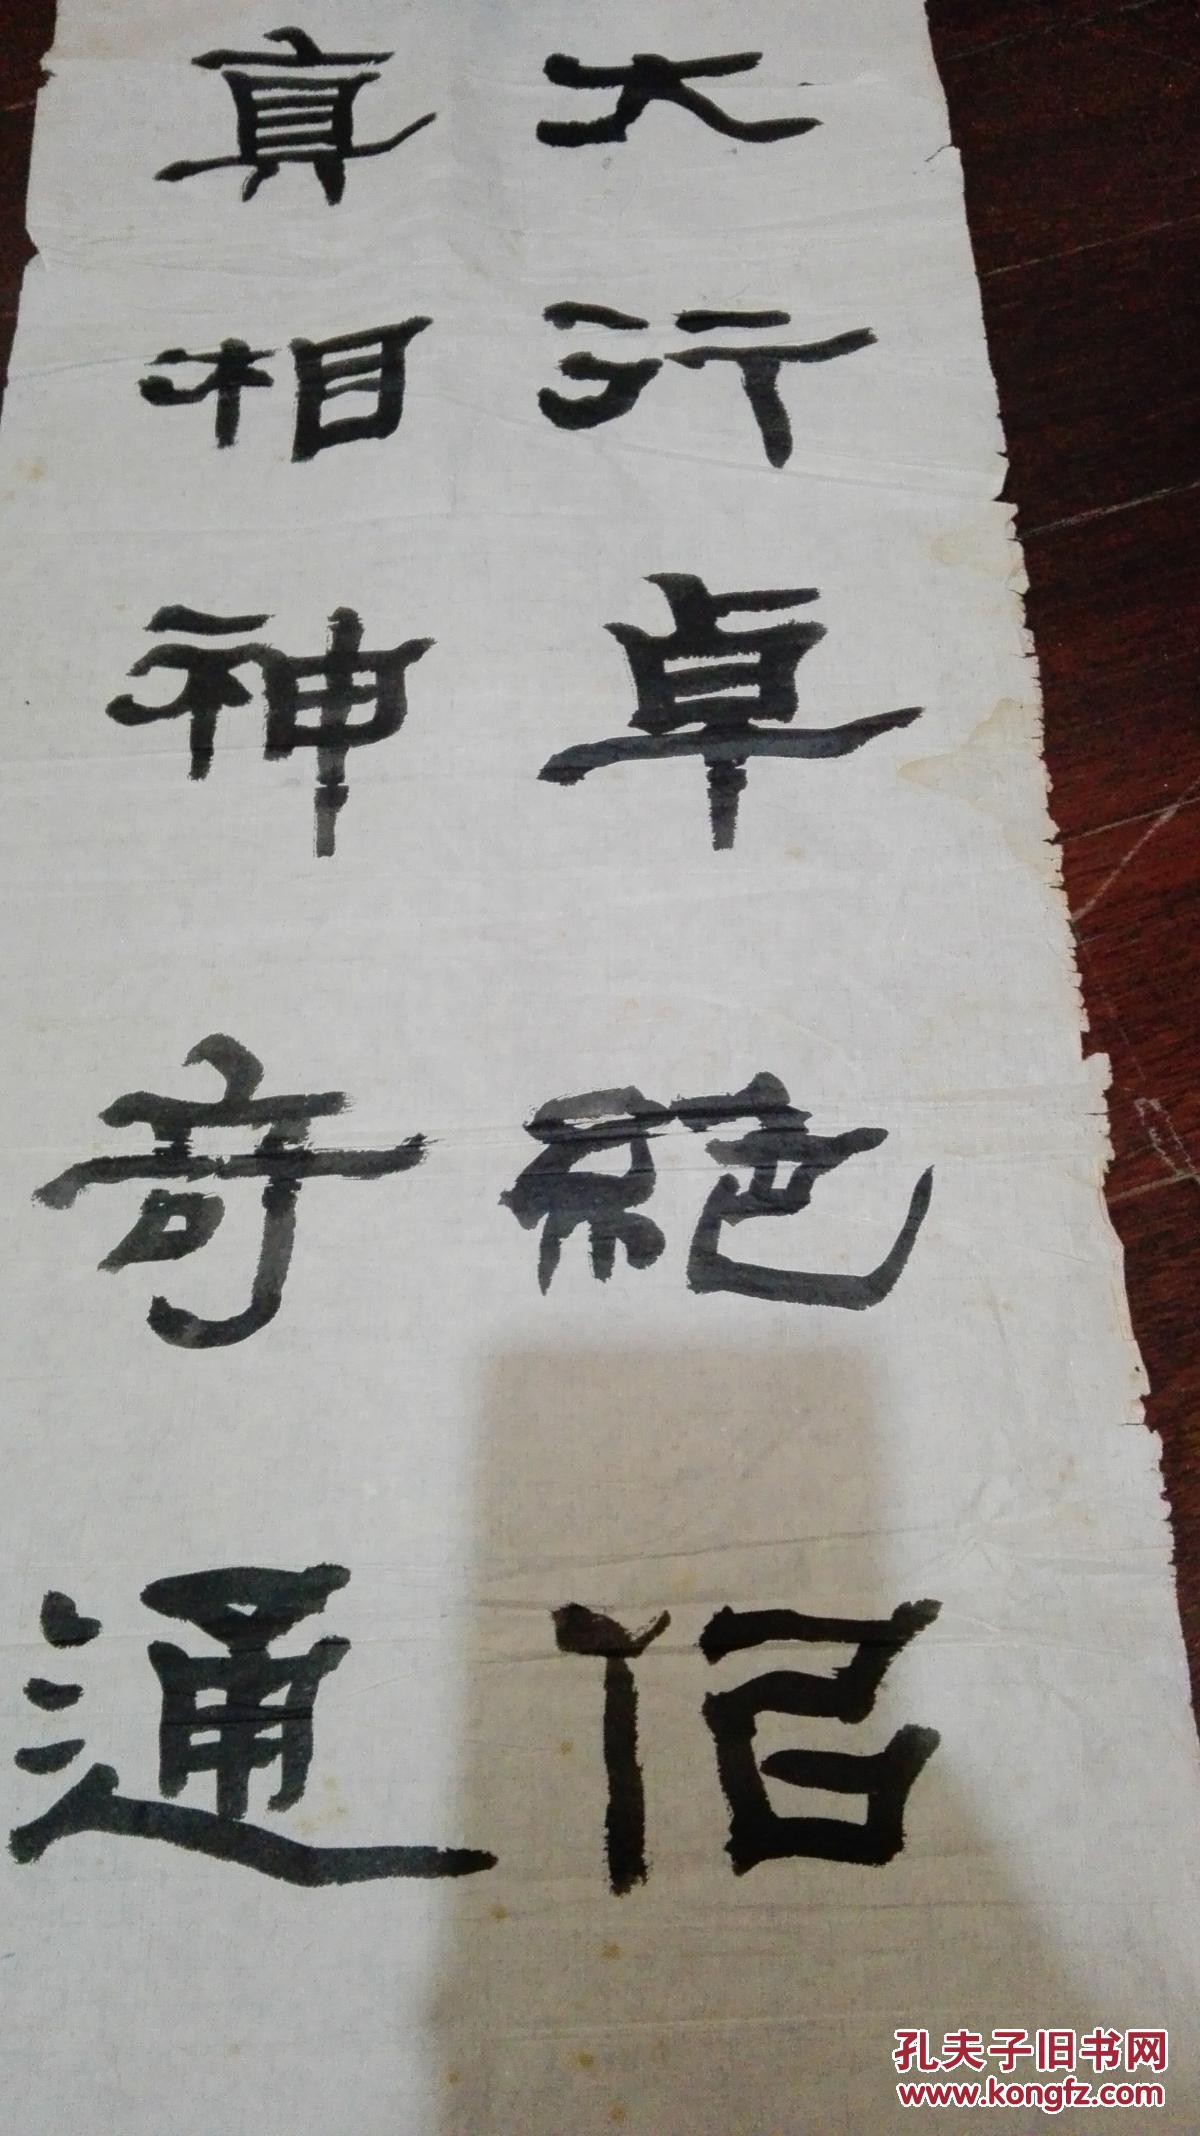 大行卓絕
真相神奇通
孔夫子旧书网
www.kongfz.com